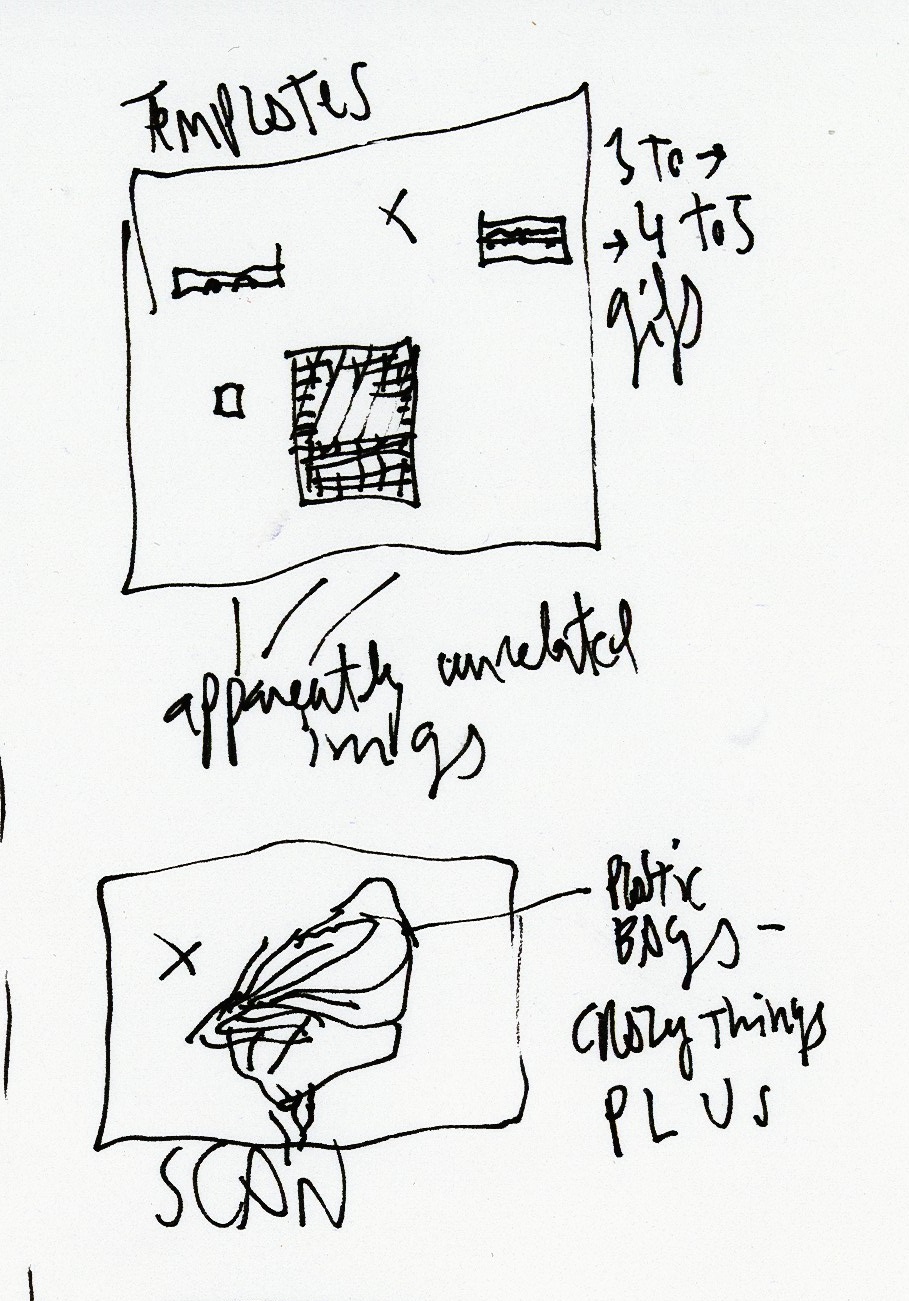 TEMPLATES
3 TO →
→ 4 TO 5
gifs
apparently unrelated
imgs
Plastic
BAGS -
CRAZY THINGS
PLUS
SCAN